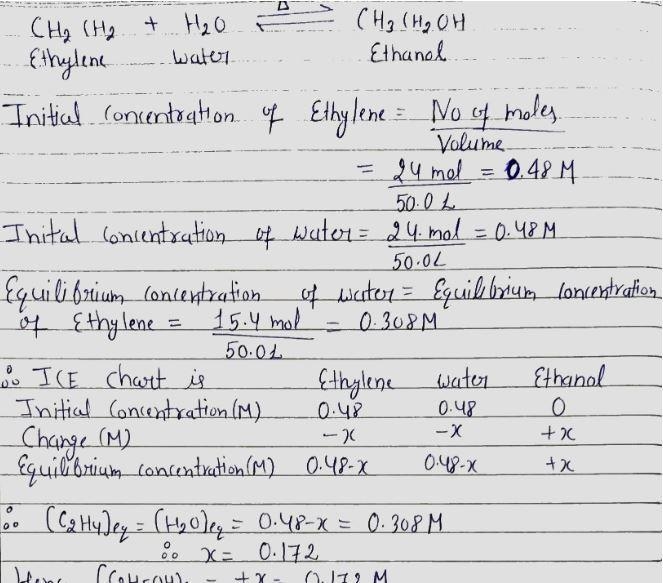 Δ
CH2 CH2 + H2O ⇌ CH3CH2OH
Ethylene water Ethanol
Initial Concentration of Ethylene = No of moles
Volume
= 24 mol = 0.48 M
50.0 L
Inital Concentration of water = 24. mol = 0.48 M
50.0L
Equilibrium concentration of water = Equilibrium concentration
of Ethylene = 15.4 mol = 0.308M
50.0L
∴ ICE chart is Ethylene water Ethanol
Initial Concentration (M) 0.48 0.48 0
Change (M) -x -x +x
Equilibrium concentration(M) 0.48-x 0.48-x +x
∴ [C2H4]eq = [H2O]eq = 0.48-x = 0.308 M
∴ x = 0.172
Hence [C2H5OH] = +x = 0.172 M